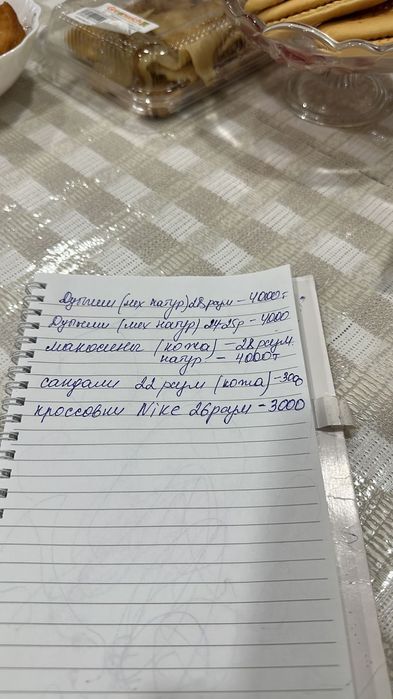 Дутыши (мех натур) 28 разм - 4000т
Дутыши (мех натур) 24-25р - 4000
макосины (кожа) - 28 разм
натур - 4000т
сандали 22 разм (кожа) - 300
кроссовки Nike 26 разм - 3000